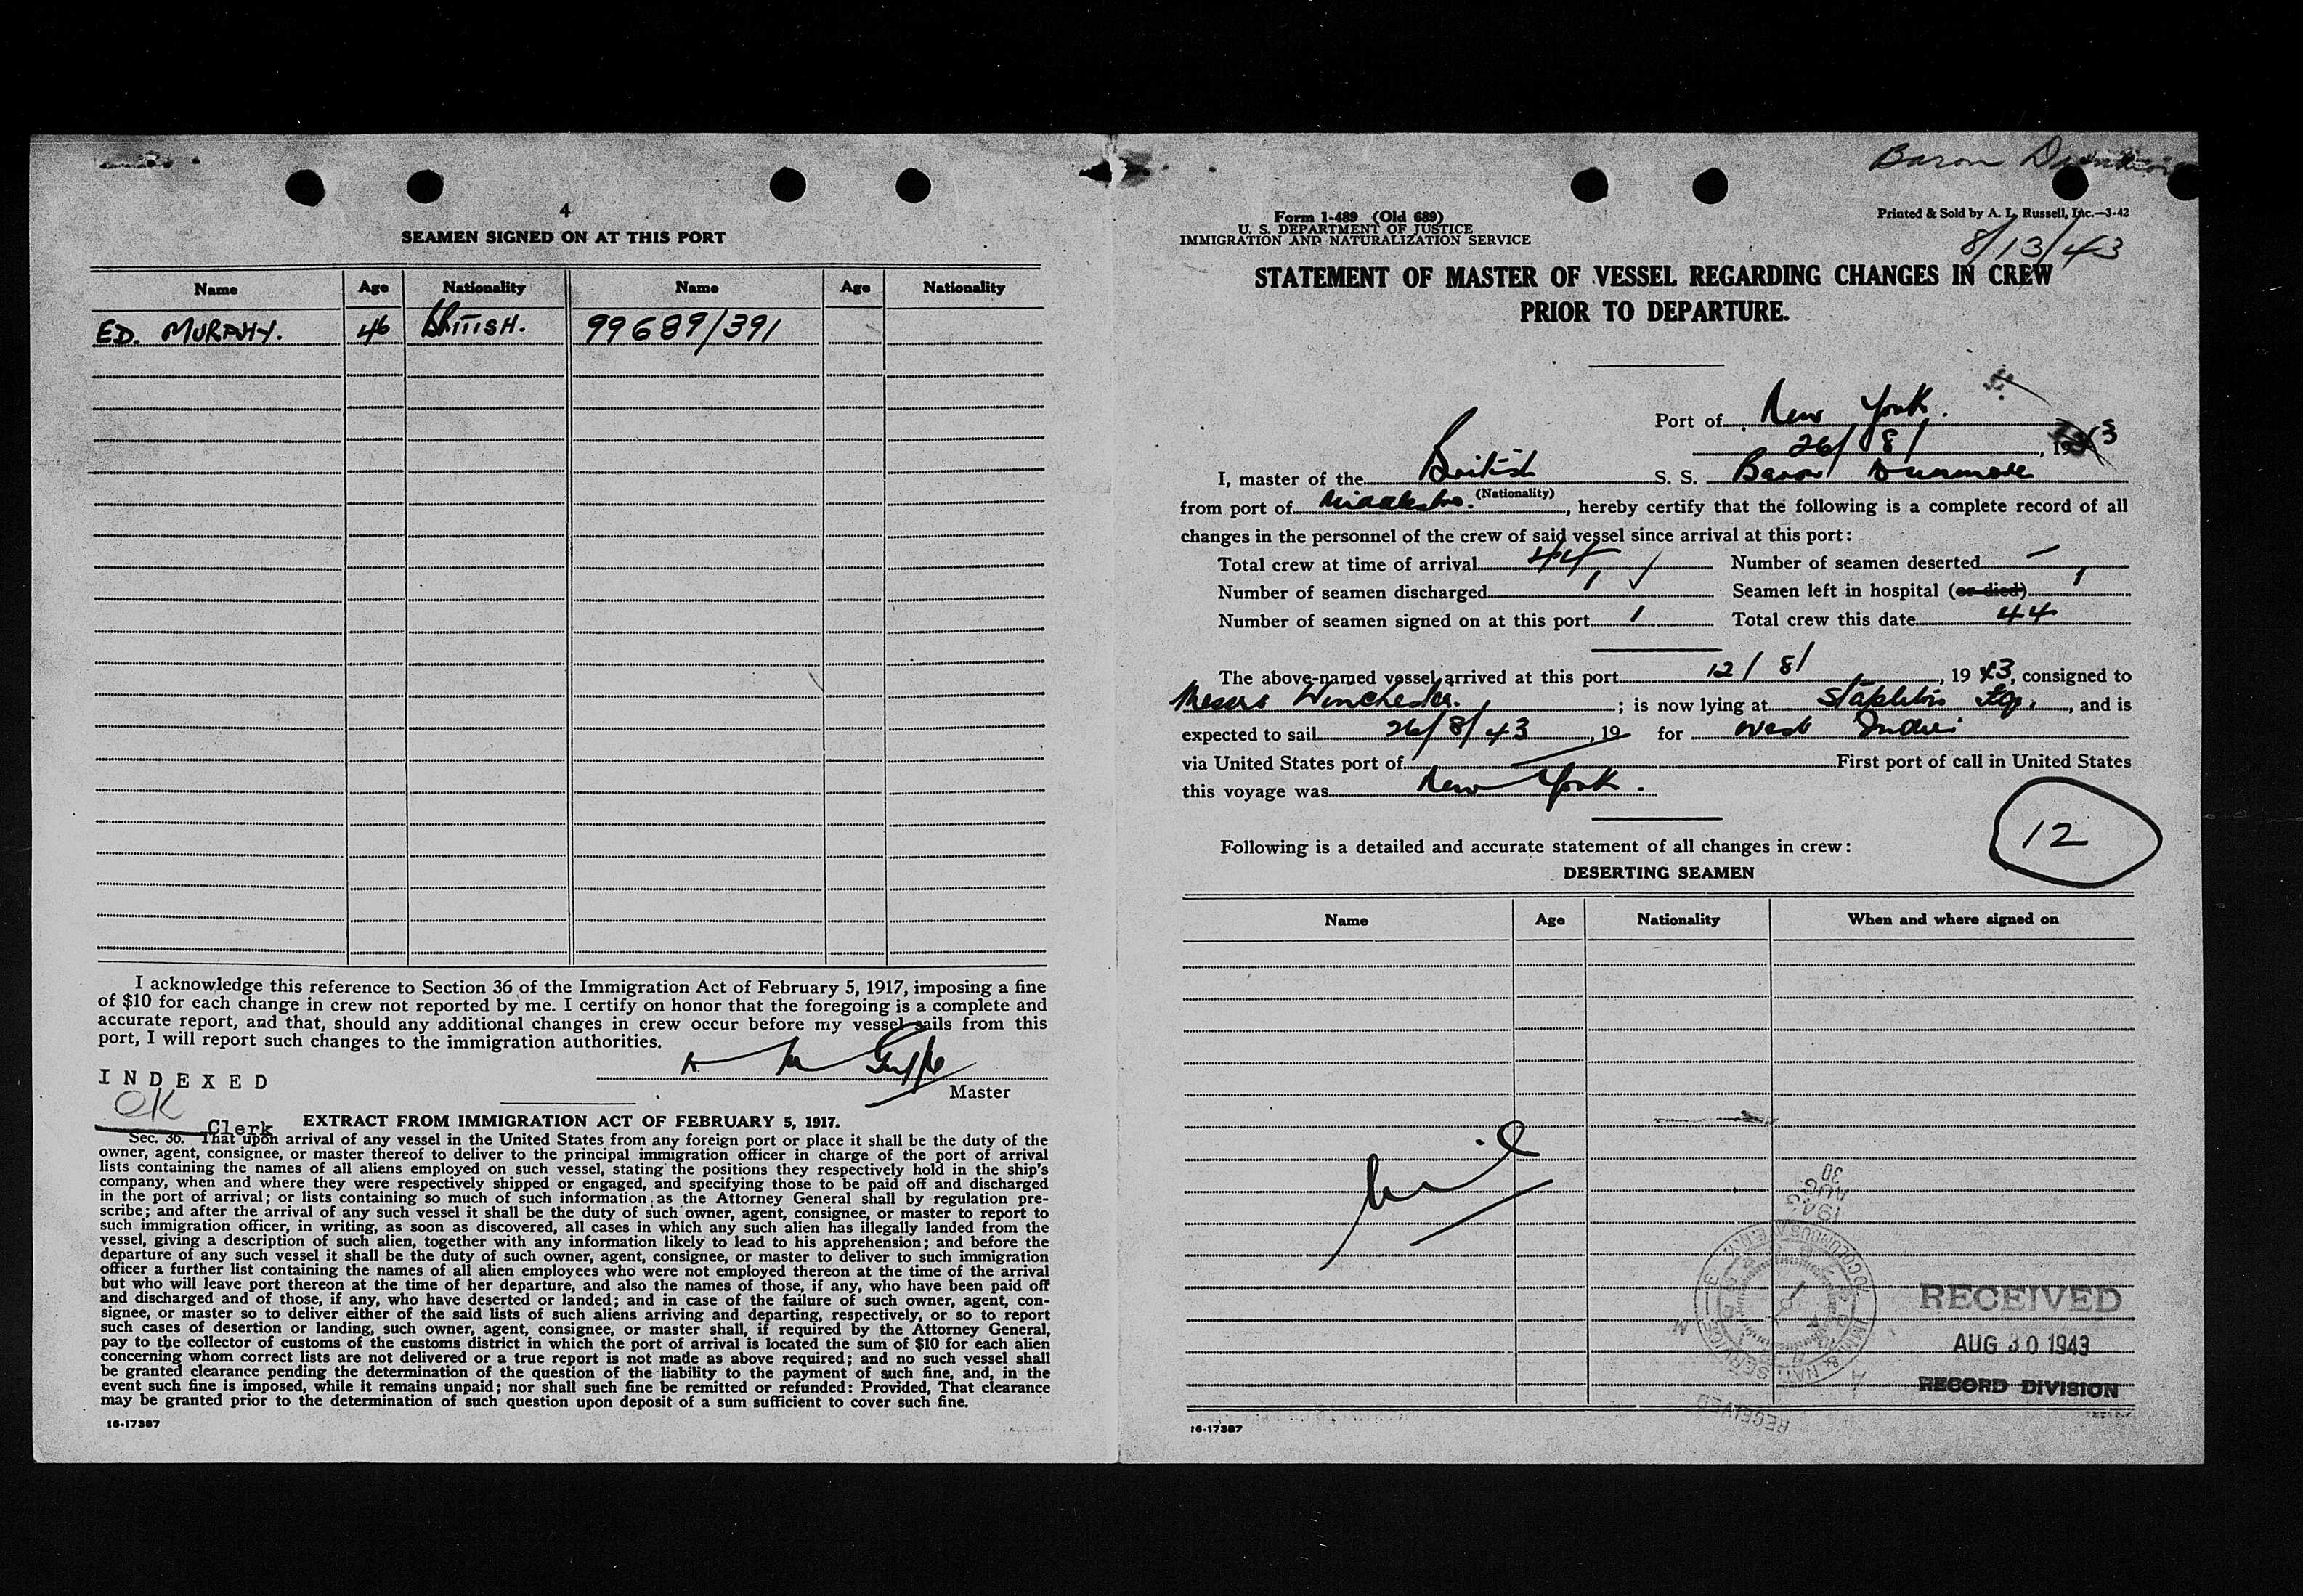 4
SEAMEN SIGNED ON AT THIS PORT
Name Age Nationality Name Age Nationality
ED. MURPHY. 46 BRITISH. 99689/391
I acknowledge this reference to Section 36 of the Immigration Act of February 5, 1917, imposing a fine
of $10 for each change in crew not reported by me. I certify on honor that the foregoing is a complete and
accurate report, and that, should any additional changes in crew occur before my vessel sails from this
port, I will report such changes to the immigration authorities.
INDEXED
Master
OK
Clerk
EXTRACT FROM IMMIGRATION ACT OF FEBRUARY 5, 1917.
Sec. 36. That upon arrival of any vessel in the United States from any foreign port or place it shall be the duty of the
owner, agent, consignee, or master thereof to deliver to the principal immigration officer in charge of the port of arrival
lists containing the names of all aliens employed on such vessel, stating the positions they respectively hold in the ship's
company, when and where they were respectively shipped or engaged, and specifying those to be paid off and discharged
in the port of arrival; or lists containing so much of such information as the Attorney General shall by regulation pre-
scribe; and after the arrival of any such vessel it shall be the duty of such owner, agent, consignee, or master to report to
such immigration officer, in writing, as soon as discovered, all cases in which any such alien has illegally landed from the
vessel, giving a description of such alien, together with any information likely to lead to his apprehension; and before the
departure of any such vessel it shall be the duty of such owner, agent, consignee, or master to deliver to such immigration
officer a further list containing the names of all alien employees who were not employed thereon at the time of the arrival
but who will leave port thereon at the time of her departure, and also the names of those, if any, who have been paid off
and discharged and of those, if any, who have deserted or landed; and in case of the failure of such owner, agent, con-
signee, or master so to deliver either of the said lists of such aliens arriving and departing, respectively, or so to report
such cases of desertion or landing, such owner, agent, consignee, or master shall, if required by the Attorney General,
pay to the collector of customs of the customs district in which the port of arrival is located the sum of $10 for each alien
concerning whom correct lists are not delivered or a true report is not made as above required; and no such vessel shall
be granted clearance pending the determination of the question of the liability to the payment of such fine, and, in the
event such fine is imposed, while it remains unpaid; nor shall such fine be remitted or refunded: Provided, That clearance
may be granted prior to the determination of such question upon deposit of a sum sufficient to cover such fine.
16-17387
Baron
Form I-489 (Old 689)
U. S. DEPARTMENT OF JUSTICE
IMMIGRATION AND NATURALIZATION SERVICE
Printed & Sold by A. L. Russell, Inc.—3-42
8/13/43
STATEMENT OF MASTER OF VESSEL REGARDING CHANGES IN CREW
PRIOR TO DEPARTURE.
Port of New York.
26/8/, 1943
I, master of the British S. S. Baron Dunmore
(Nationality)
from port of Middlesbro., hereby certify that the following is a complete record of all
changes in the personnel of the crew of said vessel since arrival at this port:
Total crew at time of arrival 44 Number of seamen deserted —
Number of seamen discharged 1 ✓ Seamen left in hospital (or died) 1
Number of seamen signed on at this port 1 Total crew this date 44
The above-named vessel arrived at this port 12/8/, 1943, consigned to
Messrs Winchester.; is now lying at Stapleton, and is
expected to sail 26/8/43, 19 for West Indies
via United States port of — First port of call in United States
this voyage was New York.
12
Following is a detailed and accurate statement of all changes in crew:
DESERTING SEAMEN
Name Age Nationality When and where signed on
nil
1943
AUG
30
RECEIVED
AUG 30 1943
RECORD DIVISION
RECEIVED
16-17387